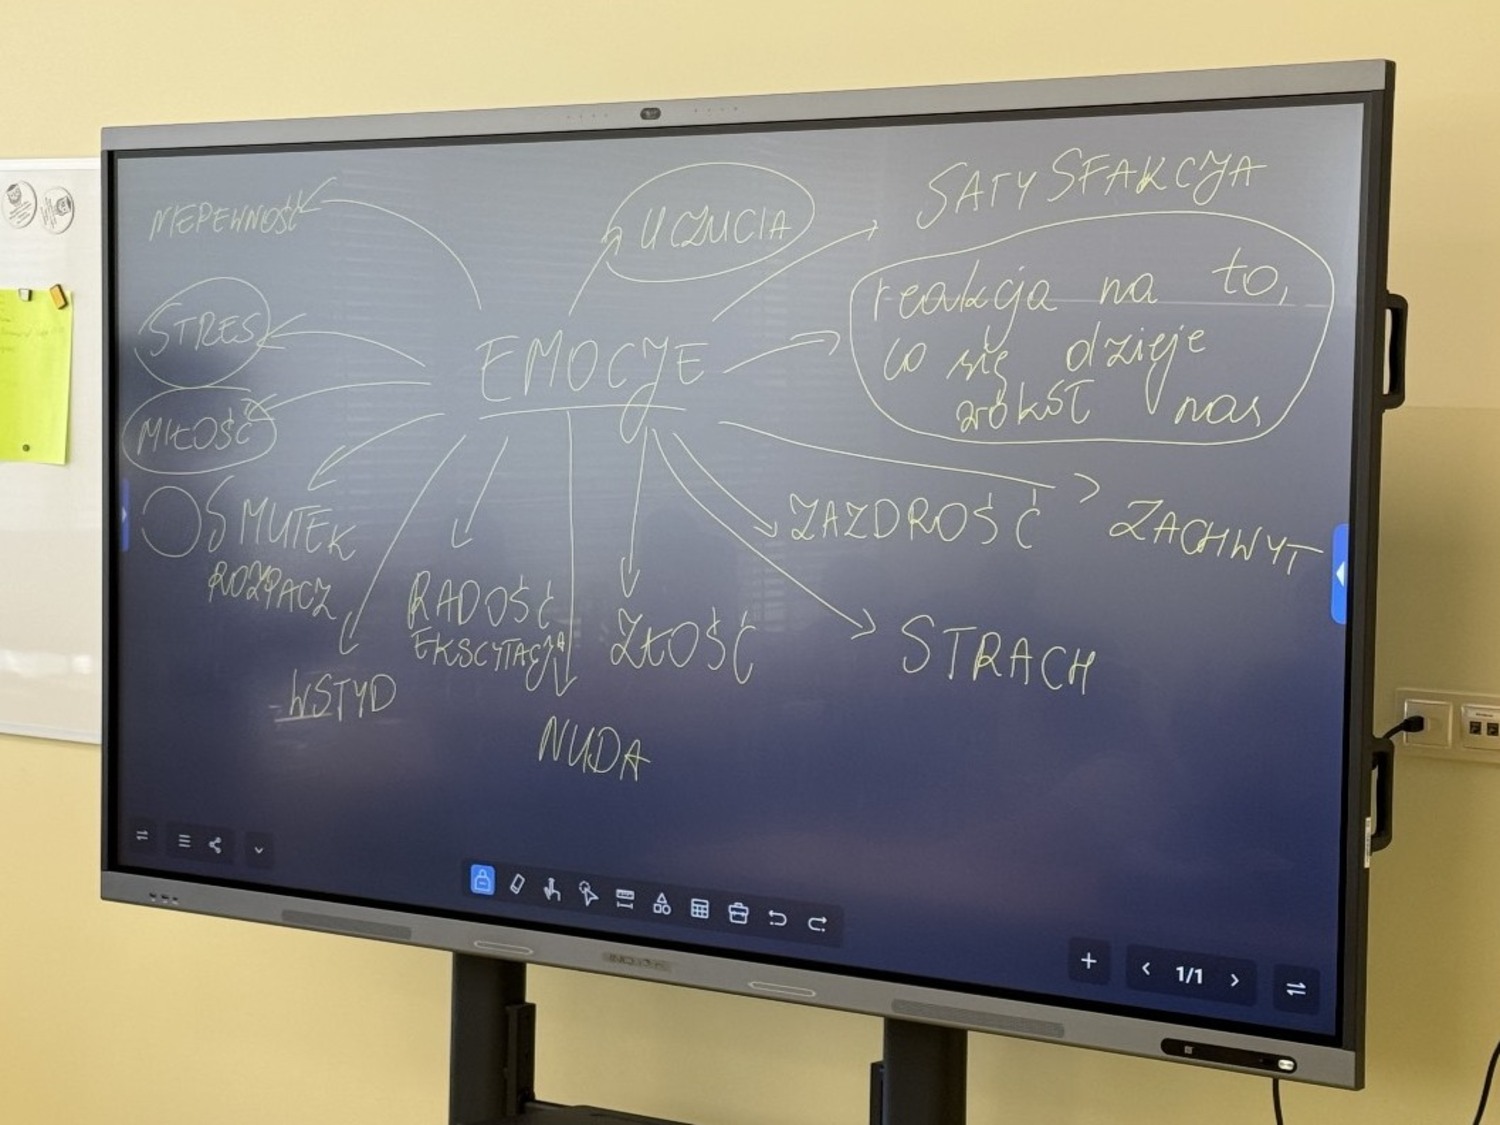 NIEPEWNOŚĆ
UCZUCIA
SATYSFAKCJA
STRES
EMOCJE
reakcja na to,
co się dzieje
wokół nas
MIŁOŚĆ
SMUTEK
ROZPACZ
ZAZDROŚĆ
ZACHWYT
RADOŚĆ
EKSCYTACJA
ZŁOŚĆ
STRACH
WSTYD
NUDA
1/1